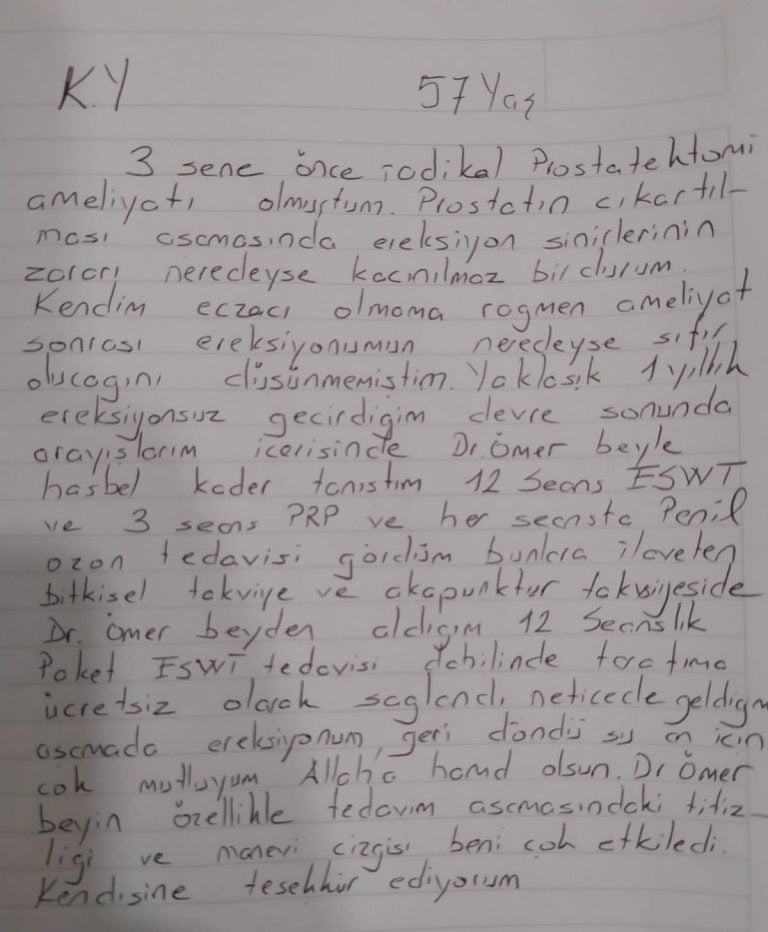 K.Y 57 Yaş
3 sene önce radikal Prostatektomi
ameliyatı olmuştum. Prostatın cıkartıl-
ması aşamasında ereksiyon sinirlerinin
zararı neredeyse kacınılmaz bir durum.
Kendim eczacı olmama rağmen ameliyat
sonrası ereksiyonumun neredeyse sıfır
olucagını düsünmemistim. Yaklasık 1 yıllık
ereksiyonsuz gecirdigim devre sonunda
arayıslarım icerisinde Dr. Ömer beyle
hasbel kader tanıstım 12 Seans ESWT
ve 3 seans PRP ve her seansta Penil
ozon tedavisi gördüm bunlara ilaveten
bitkisel takviye ve akapunktur takviyeside
Dr. Ömer beyden aldıgım 12 Seanslık
Paket ESWT tedavisi dahilinde tarafıma
ücretsiz olarak saglandı, neticede geldigim
asamada ereksiyonum, geri döndü şu an icin
cok mutluyum Allaha hamd olsun. Dr Ömer
beyin özellikle tedavim asamasındaki titiz-
ligi ve manevi cizgisi beni cok etkiledi.
Kendisine tesekkür ediyorum